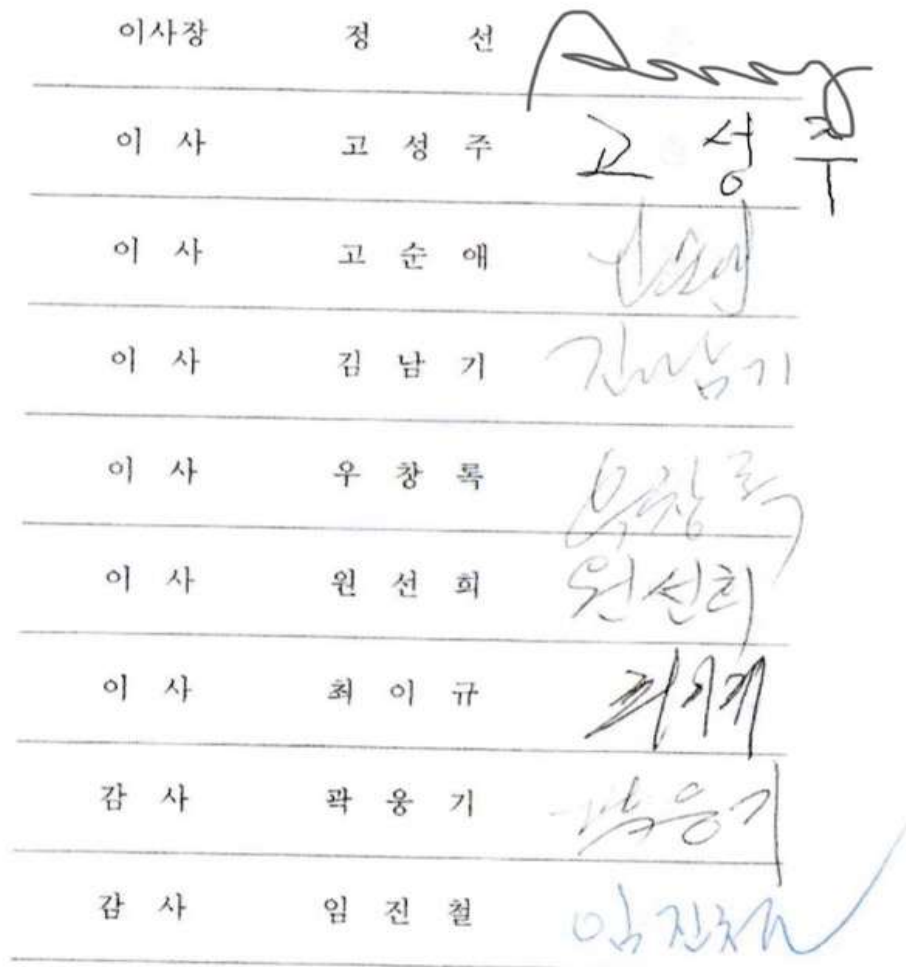 이사장 정 선
이 사 고 성 주 고 성 주
이 사 고 순 애
이 사 김 남 기 김남기
이 사 우 창 록 우창록
이 사 원 선 희 원선희
이 사 최 이 규
감 사 곽 웅 기 곽웅기
감 사 임 진 철 임진철